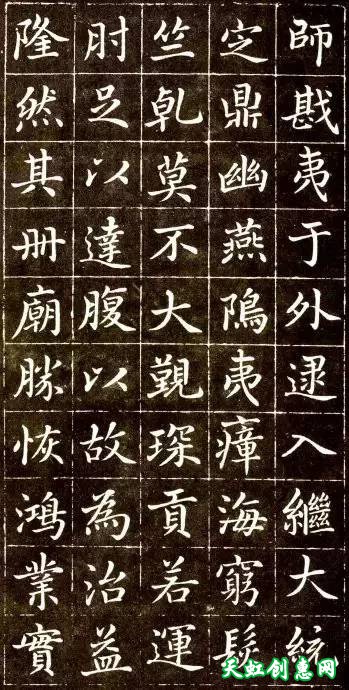 師戡夷于外逮入繼大統
㝎鼎幽燕隝夷瘴海窮髮
竺乹莫不大覲琛貢若運
肘足以達腹以故為治益
隆然其冊廟勝恢鴻業實
天虹创意网